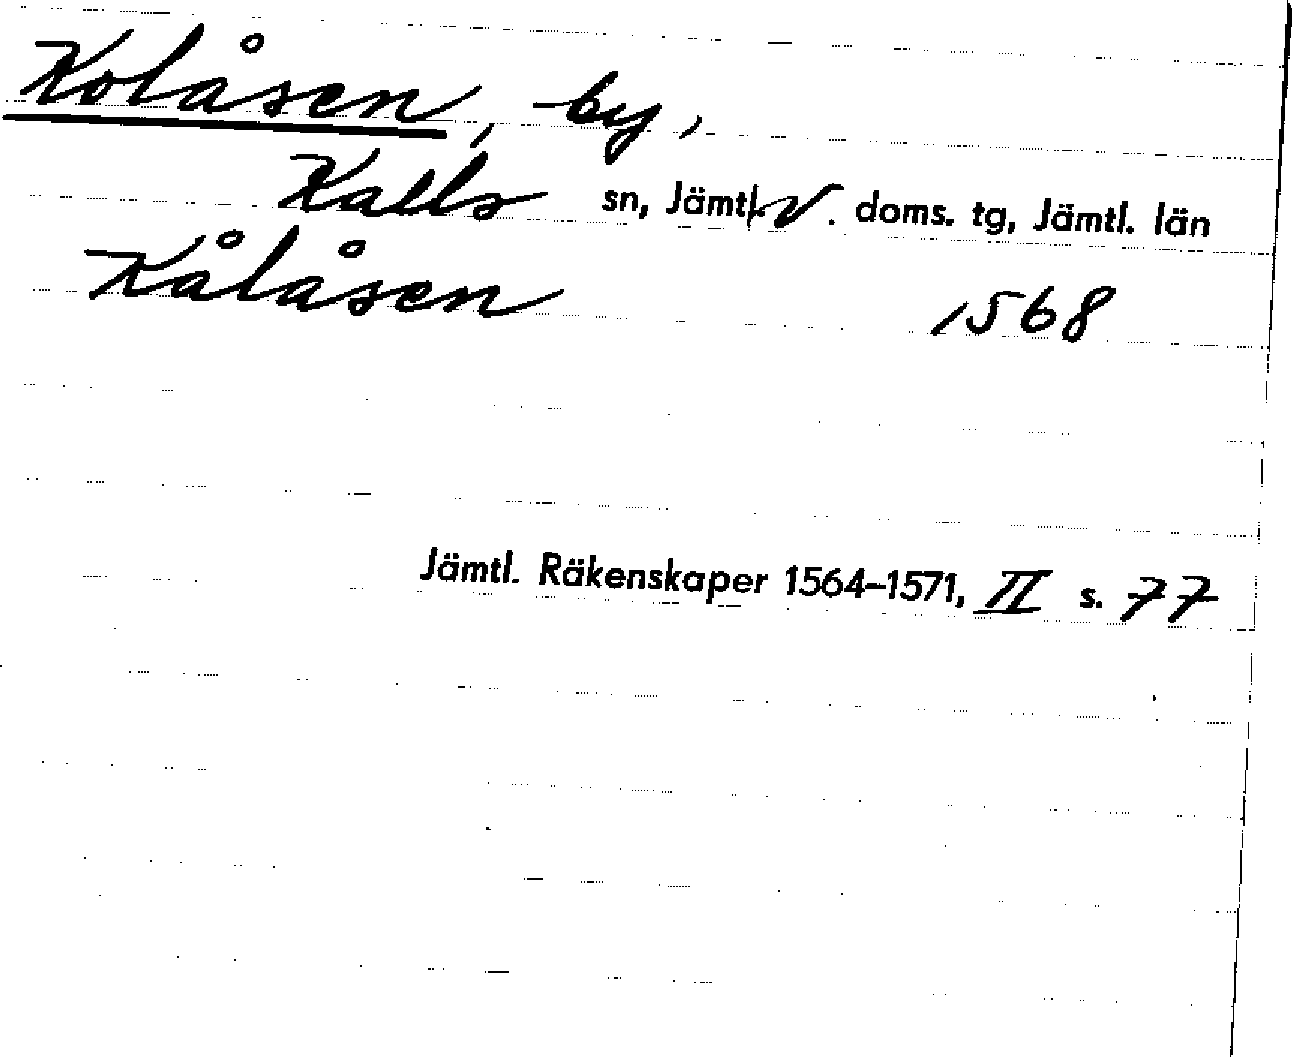 Kolåsen, by,
Kalls sn, Jämtl. V. doms. tg, Jämtl. län
Kålåsen 1568
Jämtl. Räkenskaper 1564–1571, II s. 77